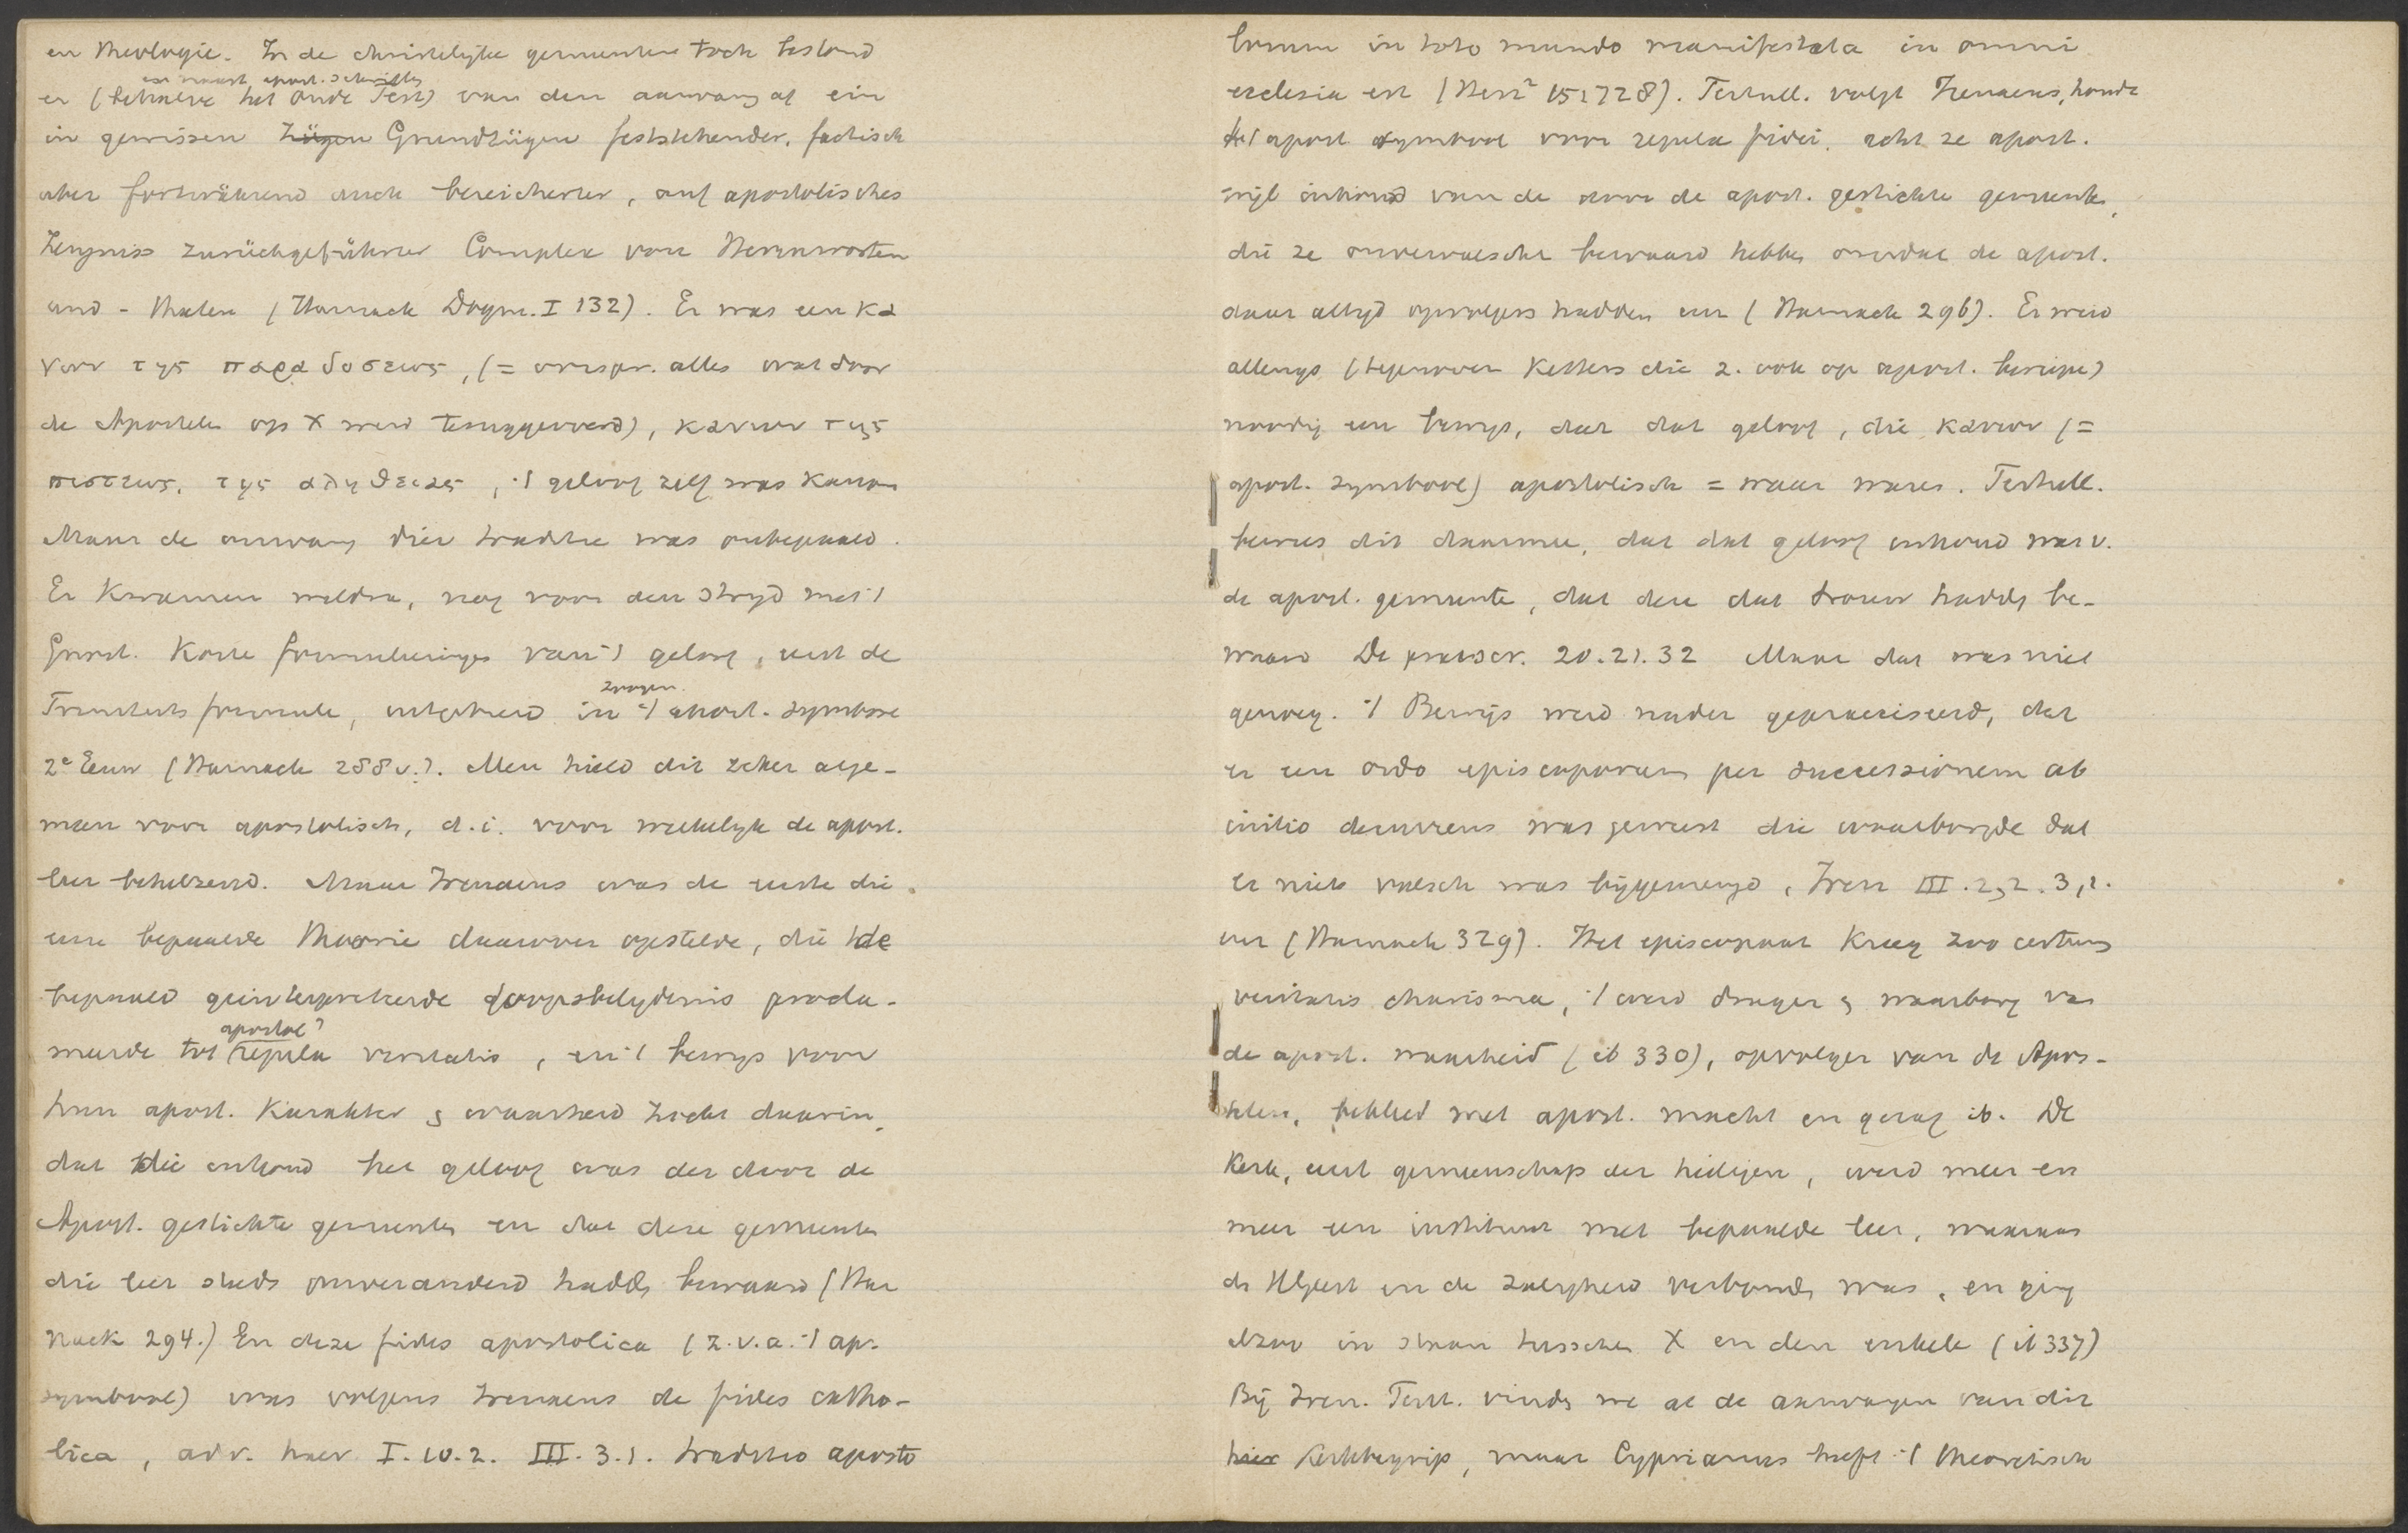 en theologie. In de christelijke gemeenten toch bestond
en naast apost. schriften
er (behalve het Oude Test) van den aanvang af ein
in gewissen Zügen Grundzügen feststehender, factisch
aber fortwährend auch bereicherter, auf apostolisches
Zeugniss zurückgeführter Complex von Herrnworten
und - thaten (Harnack Dogm. I 132). Er was een κα
νων της παραδοσεως, (= oorspr. alles wat door
de Apostelen op X werd teruggevoerd), κανων της
πιστεως, της αληθειας, 't geloof zelf was kanon
Maar de omvang dier traditie was onbepaald.
Er kwamen weldra, nog voor den strijd met 't
Gnost. korte formuleeringen van 't geloof, eerst de
zoogen.
Triniteitsformule, uitgebreid in 't apost. symbool
2e Eeuw (Harnack 288 v.). Men hield dit zeker alge-
meen voor apostolisch, d.i. voor werkelijk de apost.
leer behelzend. Maar Irenaeus was de eerste die
eene bepaalde theorie daarover opstelde, die de
bepaald geinterpreteerde doopsbelijdenis procla-
apostol?
meerde tot regula veritatis, en 't bewijs voor
hun apost. karakter & waarheid zocht daarin,
dat die inhoud het geloof was der door de
Apost. gestichte gemeenten en dat deze gemeenten
die leer steeds onveranderd hadden bewaard (Har
nack 294.) En deze fides apostolica (z.v.a. 't ap.
symbool) was volgens Irenaeus de fides catho-
lica, adv. haer I. 10.2. III. 3.1. traditio aposto
lorum in toto mundo manifestata in omni
ecclesia est (Herz² 15:728). Tertull. volgt Irenaeus, houdt
het apost symbool voor regula fidei, acht ze apost.
wijl inhoud van de door de apost. gestichte gemeenten,
die ze onvervalscht bewaard hebben omdat de apost.
daar altijd opvolgers hadden enz (Harnack 296). Er werd
allengs (tegenover Ketters die z. ook op apost. beriepen)
noodig een bewijs, dat dat geloof, die κανων (=
apost. symbool) apostolisch = waar waren. Tertull.
bewees dit daarmee, dat dat geloof inhoud was v.
de apost. gemeente, dat deze dat trouw hadden be-
waard De praescr. 20.21.32 Maar dat was niet
genoeg. 't Bewijs werd nader gepraeciseerd, dat
er een ordo episcoporum per successionem ab
initio decurrens was geweest die waarborgde dat
er niets valsch was bijgemengd, Iren III. 2,2. 3,1.
enz (Harnack 329). Het episcopaat kreeg zoo certum
veritatis charisma, 't werd drager & waarborg van
de apost. waarheid (ib 330), opvolger van de Apos-
telen, bekleed met apost. macht en gezag ib. De
Kerk, eerst gemeenschap der heiligen, werd meer en
meer een instituut met bepaalde leer, waaraan
de HGeest en de zaligheid verbonden was, en ging
alzoo in staan tusschen X en den enkele (ib 337)
Bij Iren. Tert. vinden we al de aanvangen van dit
hier Kerkbegrip, maar Cyprianus heeft 't theoretisch